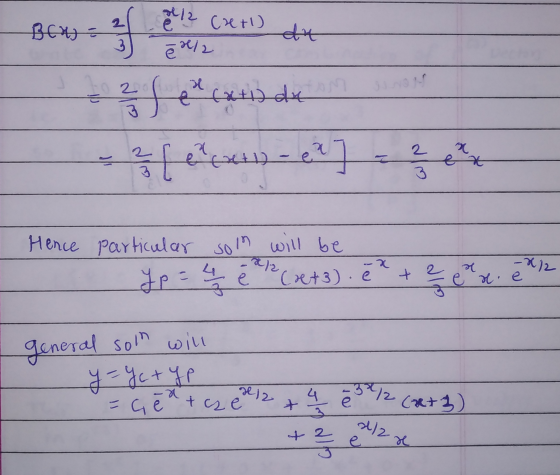 B(x) = 2/3 ∫ e^{x/2} (x+1) / e^{-x/2} dx
= 2/3 ∫ e^x (x+1) dx
= 2/3 [ e^x (x+1) - e^x ] = 2/3 e^x x
Hence particular solⁿ will be
y_p = 4/3 e^{-x/2} (x+3) · e^{-x} + 2/3 e^x x · e^{-x/2}
general solⁿ will
y = y_c + y_p
= c₁ e^{-x} + c₂ e^{x/2} + 4/3 e^{-3x/2} (x+3)
+ 2/3 e^{x/2} x